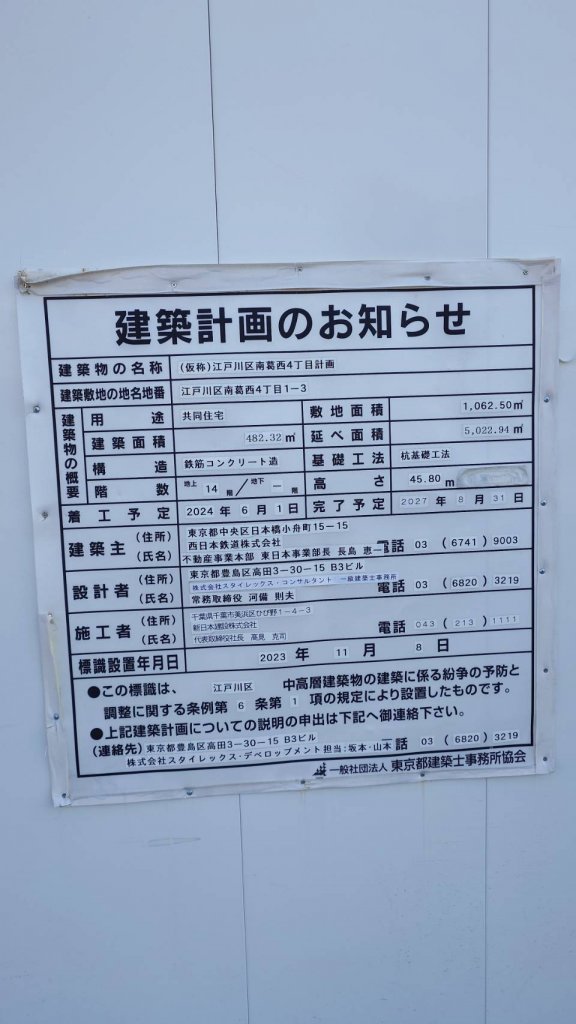 建築計画のお知らせ
建築物の名称 (仮称)江戸川区南葛西4丁目計画
建築敷地の地名地番 江戸川区南葛西4丁目1-3
建築物の概要
用途 共同住宅 敷地面積 1,062.50㎡
建築面積 482.32㎡ 延べ面積 5,022.94㎡
構造 鉄筋コンクリート造 基礎工法 杭基礎工法
階数 地上 14 階/地下 - 階 高さ 45.80 m
着工予定 2024 年 6 月 1 日 完了予定 2027 年 8 月 31 日
建築主 (住所) 東京都中央区日本橋小舟町15-15
西日本鉄道株式会社
(氏名) 不動産事業本部 東日本事業部長 長島 恵一 電話 03 (6741) 9003
設計者 (住所) 東京都豊島区高田3-30-15 B3ビル
株式会社スタイレックス・コンサルタント 一級建築士事務所
(氏名) 常務取締役 河備 則夫 電話 03 (6820) 3219
施工者 (住所) 千葉県千葉市美浜区ひび野1-4-3
新日本建設株式会社
(氏名) 代表取締役社長 高見 克司 電話 043 (213) 1111
標識設置年月日 2023 年 11 月 8 日
●この標識は、 江戸川区 中高層建築物の建築に係る紛争の予防と
調整に関する条例第 6 条第 1 項の規定により設置したものです。
●上記建築計画についての説明の申出は下記へ御連絡下さい。
(連絡先) 東京都豊島区高田3-30-15 B3ビル
株式会社スタイレックス・デベロップメント 担当:坂本・山本 話 03 (6820) 3219
一般社団法人 東京都建築士事務所協会